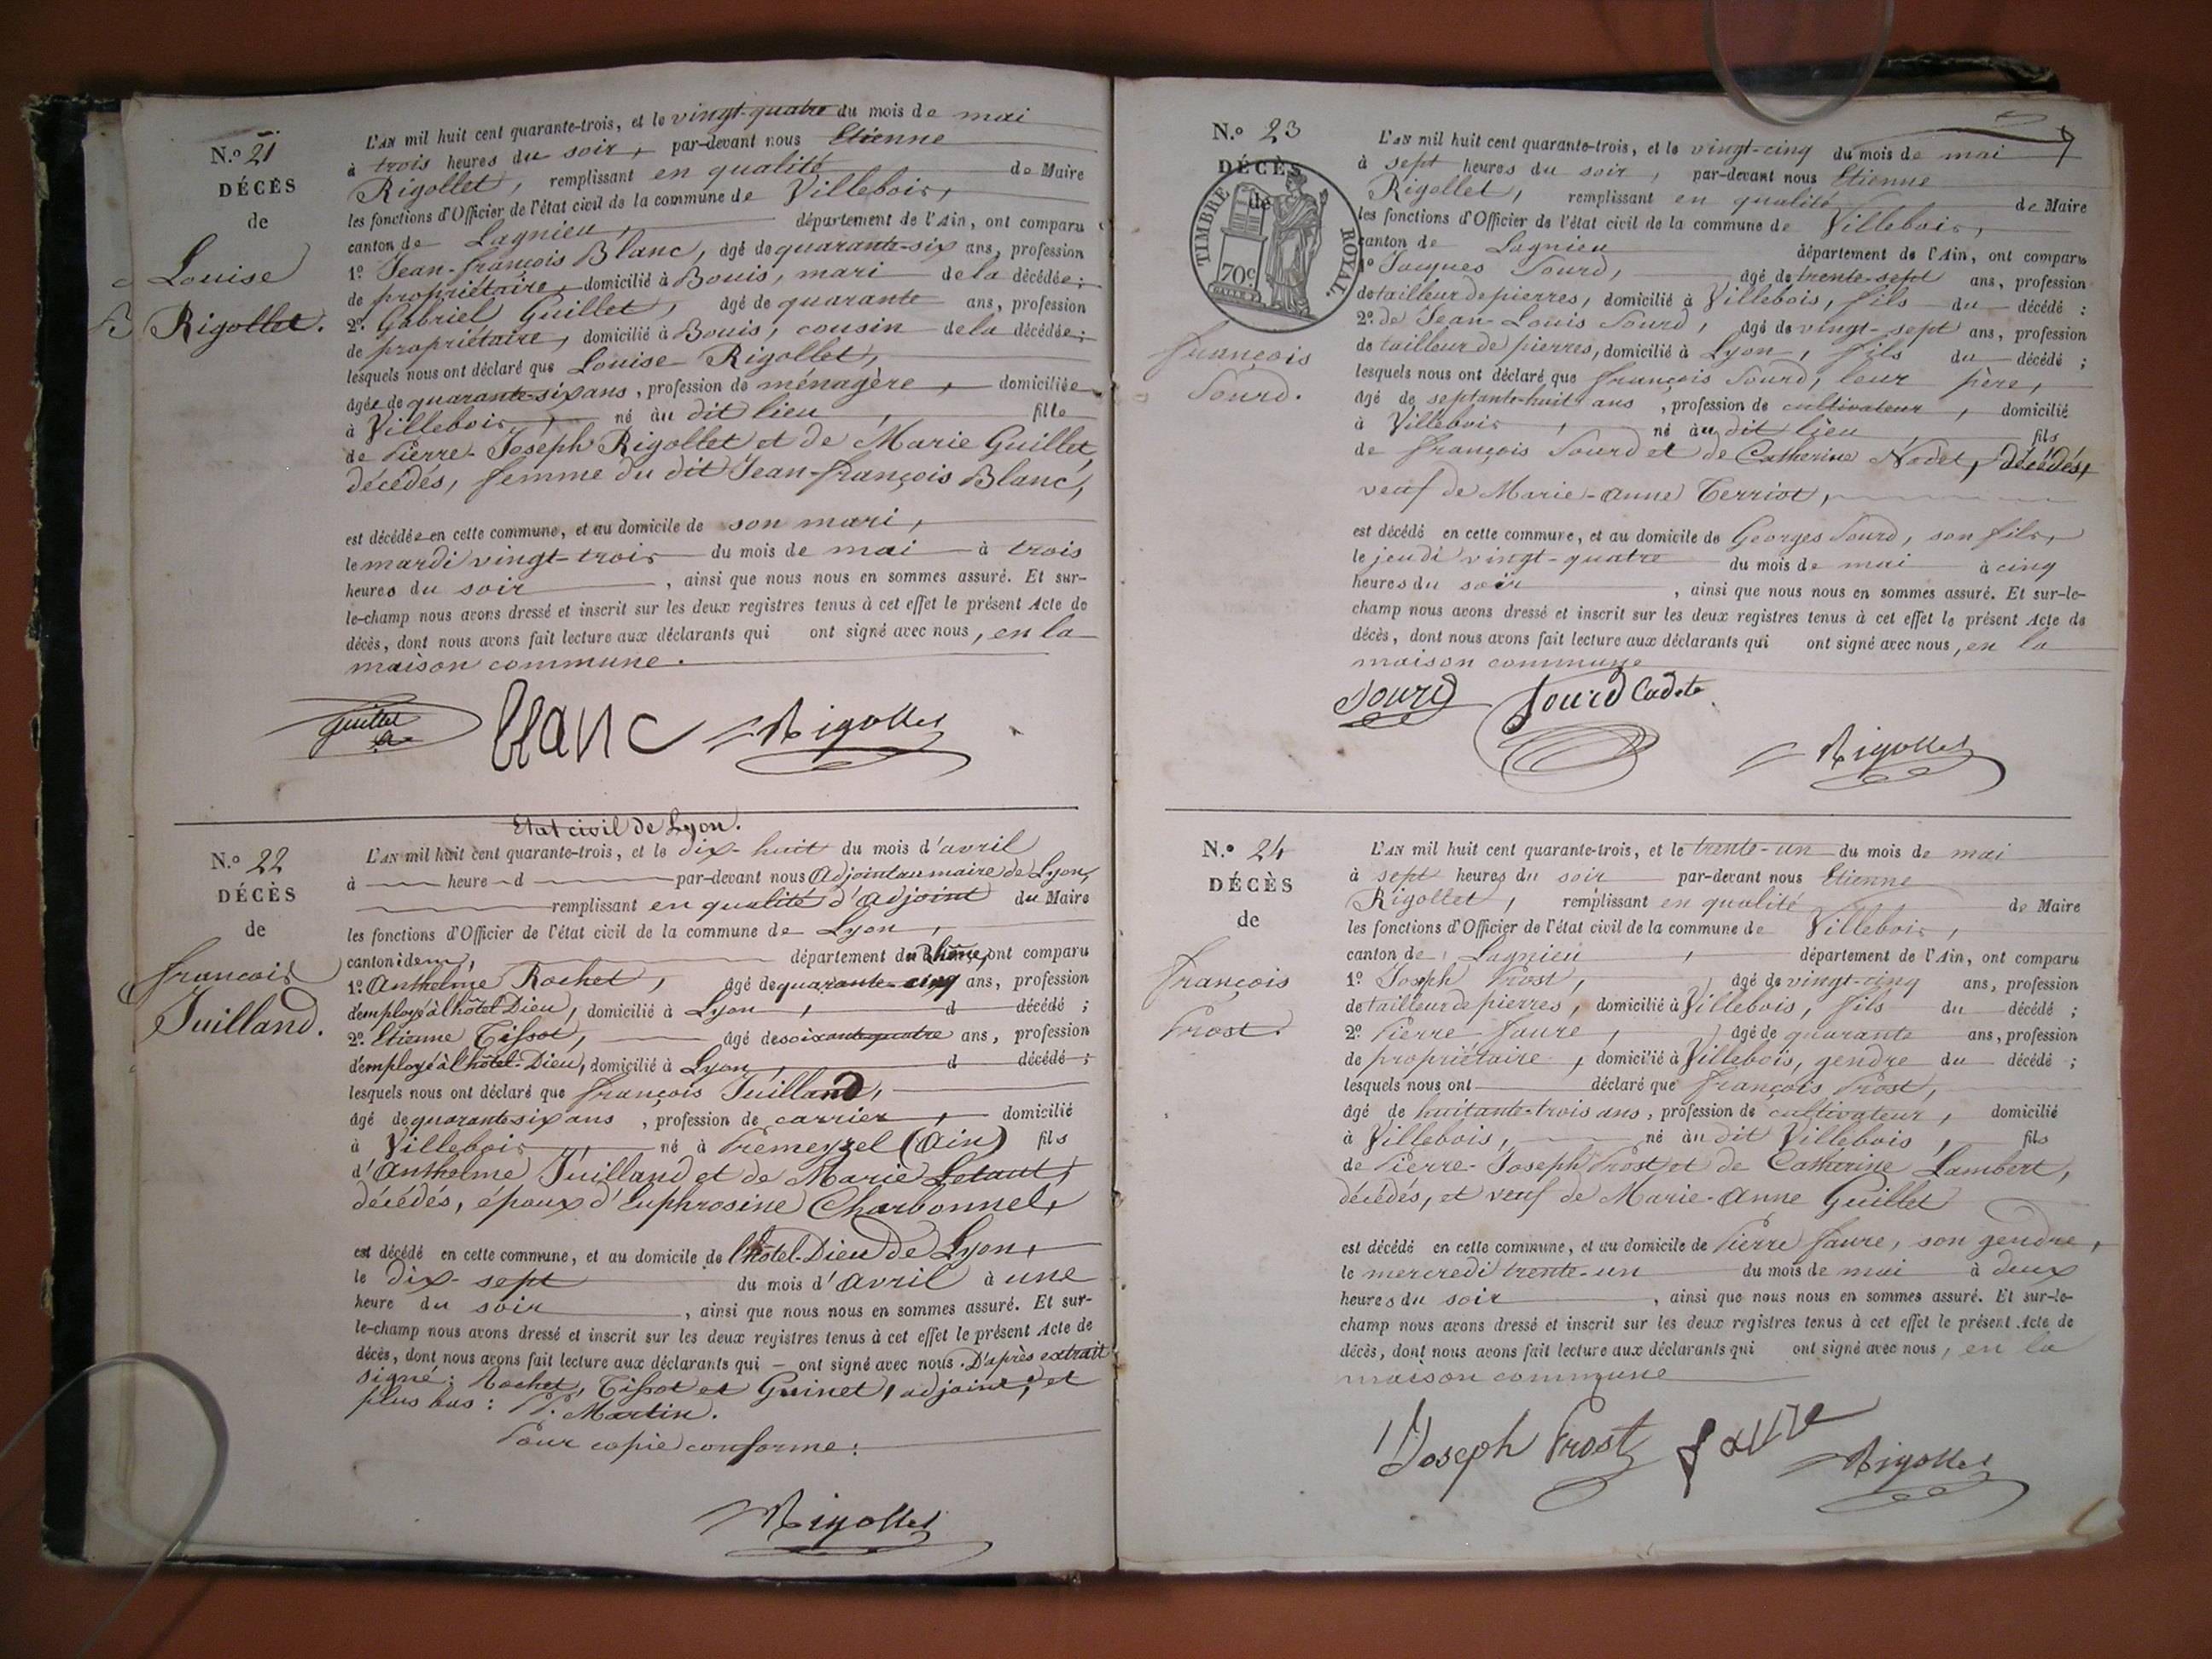 N.º 21
DÉCÈS
de
Louise
Rigollet.
L'AN mil huit cent quarante-trois, et le vingt-quatre du mois de mai
à trois heures du soir, par-devant nous Etienne
Rigollet, remplissant en qualité de Maire
les fonctions d'Officier de l'état civil de la commune de Villebois,
canton de Lagnieu, département de l'Ain, ont comparu
1.º Jean-françois Blanc, âgé de quarante-six ans, profession
de propriétaire, domicilié à Bouis, mari de la décédée;
2.º Gabriel Guillet, âgé de quarante ans, profession
de propriétaire, domicilié à Bouis, cousin de la décédée;
lesquels nous ont déclaré que Louise Rigollet,
âgée de quarante-six ans, profession de ménagère, domiciliée
à Villebois, né au dit lieu, fille
de Pierre-Joseph Rigollet et de Marie Guillet,
décédés, femme du dit Jean-françois Blanc,
est décédée en cette commune, et au domicile de son mari,
le mardi vingt-trois du mois de mai à trois
heures du soir, ainsi que nous nous en sommes assuré. Et sur-
le-champ nous avons dressé et inscrit sur les deux registres tenus à cet effet le présent Acte de
décès, dont nous avons fait lecture aux déclarants qui ont signé avec nous, en la
maison commune.
Guillet blanc Rigollet
Etat civil de Lyon.
N.º 22
DÉCÈS
de
françois
Juilland.
L'AN mil huit cent quarante-trois, et le dix-huit du mois d'avril
à heure d par-devant nous Adjoint au maire de Lyon,
remplissant en qualité d'adjoint du Maire
les fonctions d'Officier de l'état civil de la commune de Lyon,
canton idem, département du Rhône, ont comparu
1.º Anthelme Rochet, âgé de quarante-cinq ans, profession
d'employé à l'hôtel Dieu, domicilié à Lyon, d décédé;
2.º Etienne Tissot, âgé de soixante quatre ans, profession
d'employé à l'hôtel-Dieu, domicilié à Lyon, d décédé;
lesquels nous ont déclaré que françois Juilland,
âgé de quarante six ans, profession de carrier, domicilié
à Villebois, né à Premeyzel (Ain) fils
d'Anthelme Juilland et de Marie Letaut,
décédés, époux d'Euphrosine Charbonnel,
est décédé en cette commune, et au domicile de l'hôtel-Dieu de Lyon,
le dix-sept du mois d'avril à une
heure du soir, ainsi que nous nous en sommes assuré. Et sur-
le-champ nous avons dressé et inscrit sur les deux registres tenus à cet effet le présent Acte de
décès, dont nous avons fait lecture aux déclarants qui — ont signé avec nous. D'après extrait
signé: Rochet, Tissot et Guinet, adjoint; et
plus bas: P. Martin.
Pour copie conforme:
Rigollet
N.º 23
DÉCÈS
de
TIMBRE ROYAL.
70c
françois
Sourd.
L'AN mil huit cent quarante-trois, et le vingt-cinq du mois de mai
à sept heures du soir, par-devant nous Etienne
Rigollet, remplissant en qualité de Maire
les fonctions d'Officier de l'état civil de la commune de Villebois,
canton de Lagnieu département de l'Ain, ont comparu
1º Jacques Sourd, âgé de trente-sept ans, profession
de tailleur de pierres, domicilié à Villebois, fils du décédé:
2º de Jean-Louis Sourd, âgé de vingt-sept ans, profession
de tailleur de pierres, domicilié à Lyon, fils du décédé;
lesquels nous ont déclaré que françois Sourd, leur père,
âgé de septante-huit ans, profession de cultivateur, domicilié
à Villebois, né au dit lieu fils
de françois Sourd et de Catherine Nodet, décédés,
veuf de Marie-Anne Terriot,
est décédé en cette commune, et au domicile de Georges Sourd, son fils,
le jeudi vingt-quatre du mois de mai à cinq
heures du soir, ainsi que nous nous en sommes assuré. Et sur-le-
champ nous avons dressé et inscrit sur les deux registres tenus à cet effet le présent Acte de
décès, dont nous avons fait lecture aux déclarants qui ont signé avec nous, en la
maison commune
Sourd Sourd Cadet
Rigollet
N.º 24
DÉCÈS
de
françois
Prost.
L'AN mil huit cent quarante-trois, et le trente-un du mois de mai
à sept heures du soir par-devant nous Etienne
Rigollet, remplissant en qualité de Maire
les fonctions d'Officier de l'état civil de la commune de Villebois,
canton de Lagnieu, département de l'Ain, ont comparu
1º Joseph Prost, âgé de vingt-cinq ans, profession
de tailleur de pierres, domicilié à Villebois, fils du décédé;
2º Pierre faure, âgé de quarante ans, profession
de propriétaire, domicilié à Villebois, gendre du décédé;
lesquels nous ont déclaré que françois Prost,
âgé de huitante-trois ans, profession de cultivateur, domicilié
à Villebois, né au dit Villebois, fils
de Pierre-Joseph Prost et de Catherine Lambert,
décédés, et veuf de Marie-Anne Guillet
est décédé en cette commune, et au domicile de Pierre faure, son gendre,
le mercredi trente-un du mois de mai à deux
heures du soir, ainsi que nous nous en sommes assuré. Et sur-le-
champ nous avons dressé et inscrit sur les deux registres tenus à cet effet le présent Acte de
décès, dont nous avons fait lecture aux déclarants qui ont signé avec nous, en la
maison commune
Joseph Prost faure Rigollet